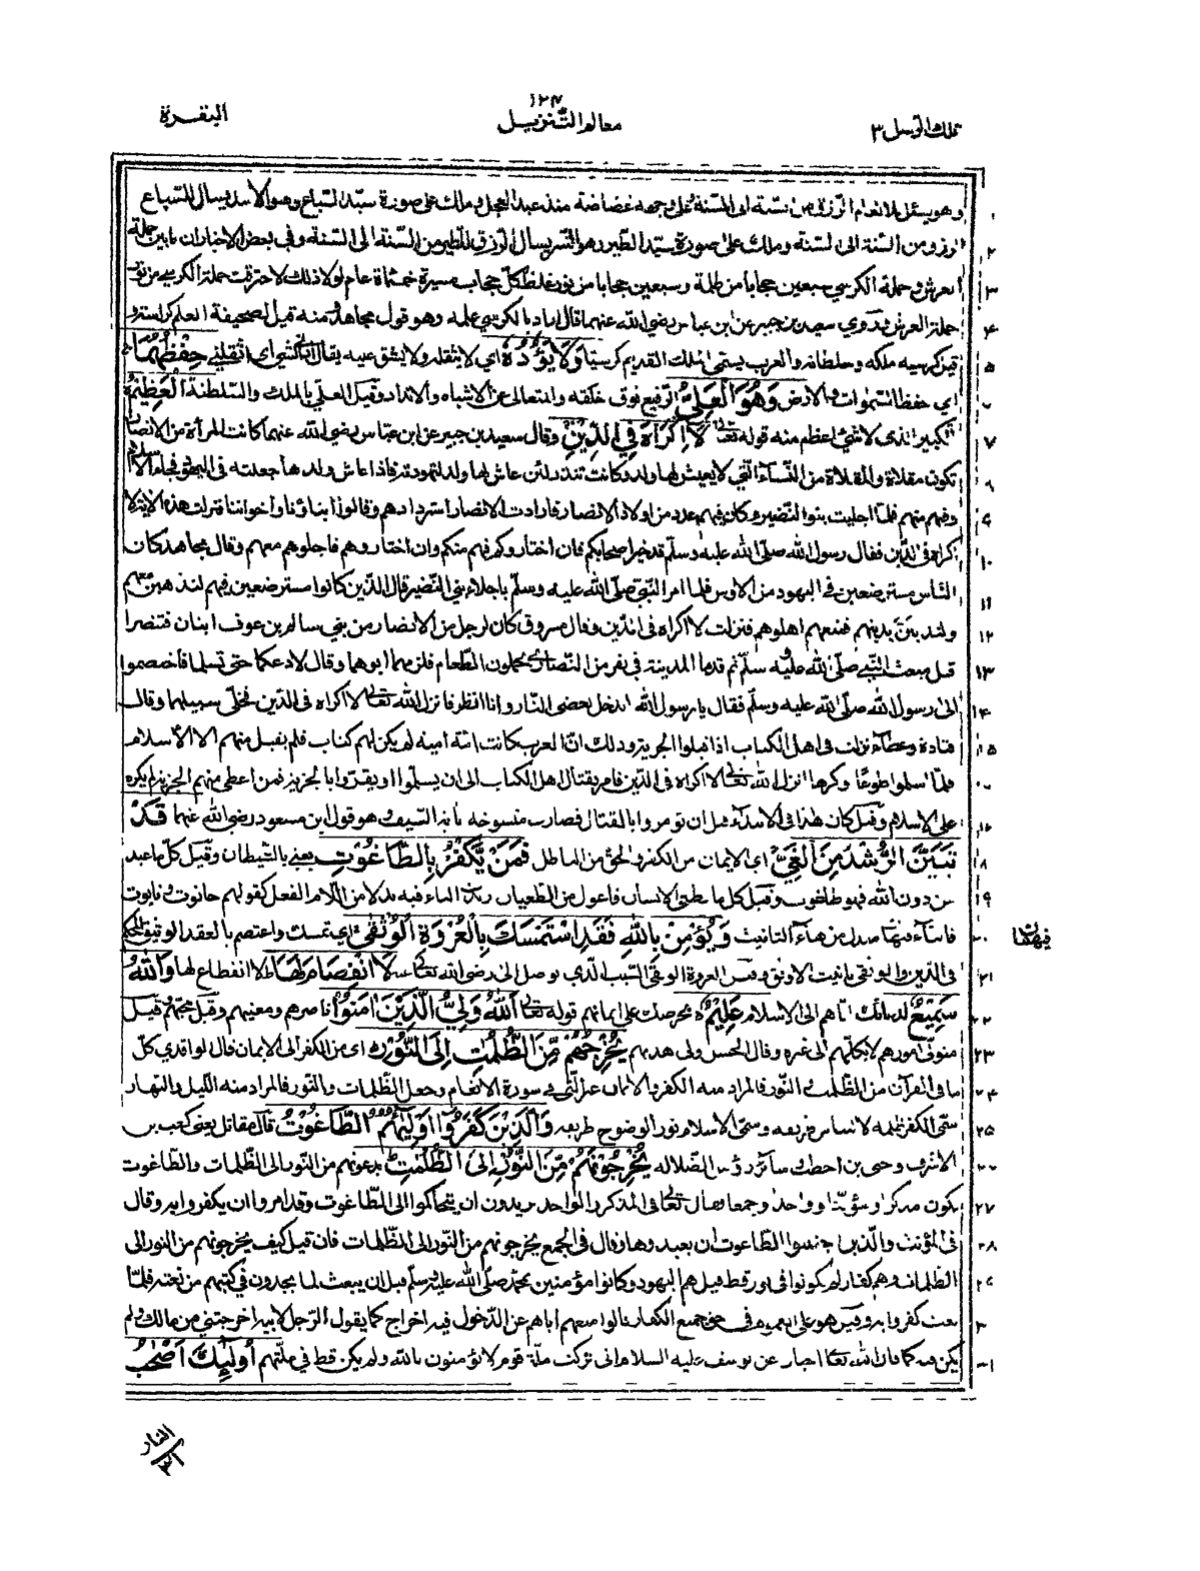 البقرة
١٢٧
معالم التنزيل
تلك الرسل ٣
وهو يسئل للانعام الرزق من السنة الى السنة وعلى وجهه غضاضة منذ عبد العجل وملك على صورة سيد السباع وهو الاسد يسال للسباع
الرزق من السنة الى السنة وملك على صورة سيد الطير وهو النسر يسال الرزق للطير من السنة الى السنة وفي بعض الاخبار ان ما بين حملة
العرش وحملة الكرسي سبعين حجابا من ظلمة وسبعين حجابا من نور غلظ كل حجاب مسيرة خمسمائة عام لولا ذلك لاحترقت حملة الكرسي من نور
حملة العرش وروي سعيد بن جبير عن ابن عباس رضي الله عنهما قال اراد بالكرسي علمه وهو قول مجاهد ومنه قيل لصحيفة العلم كراسة و
قيل كرسيه ملكه وسلطانه والعرب يسمى الملك القديم كرسيا وَلَا يَؤُدُهٗ اي لا يثقله ولا يشق عليه يقال اٰدني الشئ اي اثقلني حِفْظُهُمَا
اي حفظ السموات والارض وَهُوَ الْعَلِيُّ الرفيع فوق خلقه والمتعالى عن الاشباه والانداد وقيل العلي بالملك والسلطنة الْعَظِيْمُ
الكبير الذى لا شئ اعظم منه قوله تعالى لَآ اِكْرَاهَ فِي الدِّيْنِ وقال سعيد بن جبير عن ابن عباس رضي الله عنهما كانت المرأة من الانصار
تكون مقلاة والمقلاة من النساء التي لا يعيش لها ولد وكانت تنذر لئن عاش لها ولد لتهودنه فاذا عاش ولدها جعلته في اليهود فجاء الاسلام
وفيهم منهم فلما اجليت بنوا النضير وكان فيهم عدد من اولاد الانصار فارادت الانصار استردادهم وقالوا ابناؤنا واخواننا فنزلت هذه الاية لا
اكراه في الدين فقال رسول الله صلى الله عليه وسلم قد خير اصحابكم فان اختاروكم فهم منكم وان اختاروهم فاجلوهم معهم وقال مجاهد كان
الناس مسترضعين في اليهود من الاوس فلما امر النبي صلى الله عليه وسلم باجلاء بني النضير قال الذين كانوا مسترضعين فيهم لنذهبن معهم
ولندينن بدينهم فمنعهم اهلوهم فنزلت لا اكراه في الدين وقال مسروق كان لرجل من الانصار من بني سالم بن عوف ابنان فتنصرا
قبل مبعث النبي صلى الله عليه وسلم ثم قدما المدينة في نفر من النصارى يحملون الطعام فلزمهما ابوهما وقال لا ادعكما حتى تسلما فاختصموا
الى رسول الله صلى الله عليه وسلم فقال يا رسول الله ايدخل بعضي النار وانا انظر فانزل الله تعالى لا اكراه في الدين فخلى سبيلهما وقال
قتادة وعطاء نزلت في اهل الكتاب اذا قبلوا الجزية وذلك ان العرب كانت امة امية لم يكن لهم كتاب فلم يقبل منهم الا الاسلام
فلما اسلموا طوعا وكرها انزل الله تعالى لا اكراه في الدين فامر بقتال اهل الكتاب الى ان يسلموا او يقروا بالجزية فمن اعطى منهم الجزية لم يكره
على الاسلام وقيل كان هذا في الابتداء قبل ان يؤمروا بالقتال فصارت منسوخة بآية السيف وهو قول ابن مسعود رضي الله عنهما قَدْ
تَبَيَّنَ الرُّشْدُ مِنَ الْغَيِّ اي الايمان من الكفر والحق من الباطل فَمَنْ يَّكْفُرْ بِالطَّاغُوْتِ يعني بالشيطان وقيل كل ما عبد
من دون الله فهو طاغوت وقيل كل ما يطغى الانسان فاعول من الطغيان زيدت التاء فيه بدلا من اللام الفعل كقولهم حانوت وتابوت
فالتاء فيهما مبدل من هاء التانيث وَيُؤْمِنْ بِاللهِ فَقَدِ اسْتَمْسَكَ بِالْعُرْوَةِ الْوُثْقٰى اي تمسك واعتصم بالعقد الوثيق المحكم
في الدين والوثقى تانيث الاوثق وقيل العروة الوثقى السبب الذي يوصل الى رضى الله تعالى لَا انْفِصَامَ لَهَا لا انقطاع لها وَاللهُ
سَمِيْعٌ لدعائك اياهم الى الاسلام عَلِيْمٌ بحرصك على ايمانهم قوله تعالى اَللهُ وَلِيُّ الَّذِيْنَ اٰمَنُوْا ناصرهم ومعينهم وقيل محبهم وقيل
متولى امورهم لا يكلهم الى غيره وقال الحسن ولى هدايتهم يُخْرِجُهُمْ مِّنَ الظُّلُمٰتِ اِلَى النُّوْرِ اى من الكفر الى الايمان قال الواقدي كل
ما في القرآن من الظلمات والنور فالمراد منه الكفر والايمان غير التي في سورة الانعام وجعل الظلمات والنور فالمراد منه الليل والنهار
سمى الكفر ظلمة لالتباس طريقه وسمى الاسلام نورا لوضوح طريقه وَالَّذِيْنَ كَفَرُوْٓا اَوْلِيٰٓئُهُمُ الطَّاغُوْتُ قال مقاتل يعنى كعب بن
الاشرف وحيى بن اخطب وسائر رؤس الضلالة يُخْرِجُوْنَهُمْ مِّنَ النُّوْرِ اِلَى الظُّلُمٰتِ يدعونهم من النور الى الظلمات والطاغوت
يكون مذكرا ومؤنثا وواحدا وجمعا وقال تعالى في المذكر والواحد يريدون ان يتحاكموا الى الطاغوت وقد امروا ان يكفروا به وقال
في المؤنث والذين اجتنبوا الطاغوت ان يعبدوها وقال في الجمع يخرجونهم من النور الى الظلمات فان قيل كيف يخرجونهم من النور الى
الظلمات وهم كفار لم يكونوا في نور قط قيل هم اليهود وكانوا مؤمنين بمحمد صلى الله عليه وسلم قبل ان يبعث لما يجدون في كتبهم من نعته فلما
بعث كفروا به وقيل هو على العموم في حق جميع الكفار قالوا منعهم اياهم عن الدخول فيه اخراج كما يقول الرجل لابيه اخرجتني من مالك ولم
يكن فيه كما قال الله تعالى اخبارا عن يوسف عليه السلام انى تركت ملة قوم لا يؤمنون بالله ولم يكن قط في ملتهم اُولٰٓئِكَ اَصْحٰبُ
النار